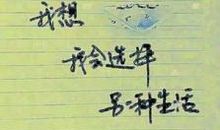 我想
我会选择
另一种生活